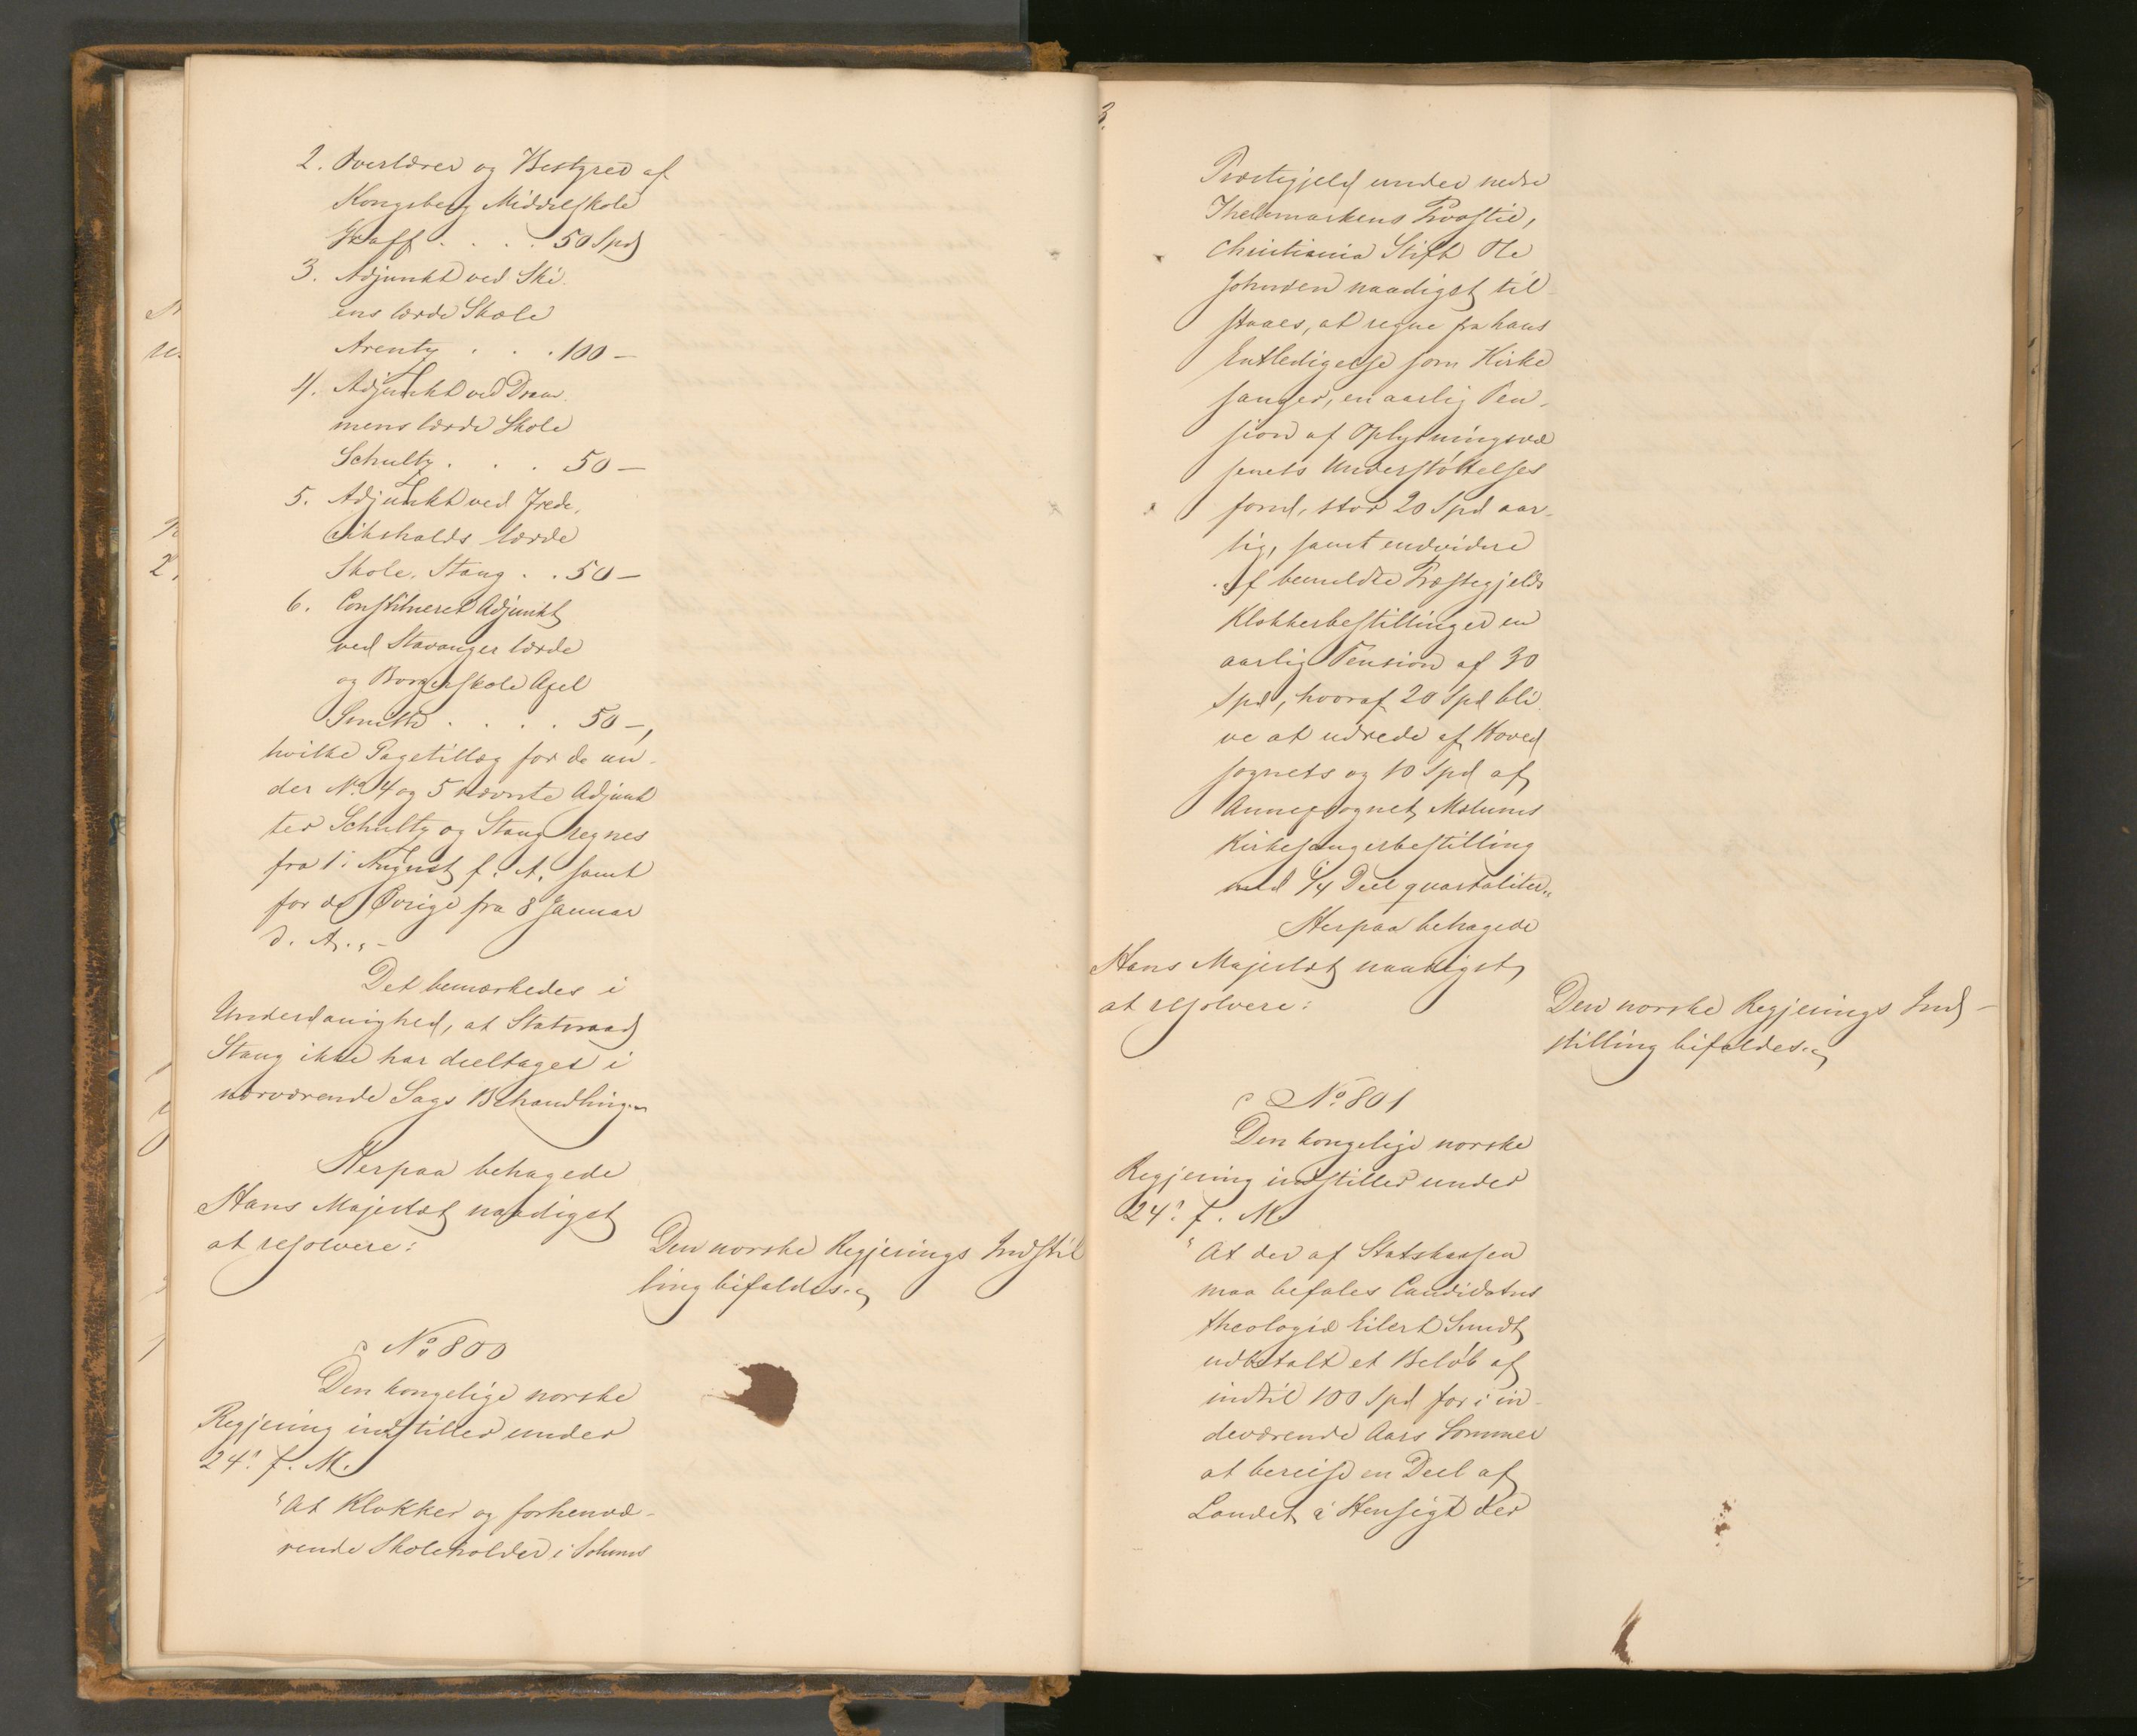 2. Overlærer og Bestyrer af
Kongsberg Middelskole
Graff . . . . 50 Spd
3. Adjunkt ved Ski-
ens lærde Skole
Arentz . . . 100 –
4. Adjunkt ved Dram-
mens lærde Skole
Schultz . . . 50 –
5. Adjunkt ved Frede-
rikshalds lærde
Skole, Stang . . 50 –
6. Constitueret Adjunkt
ved Stavanger lærde
og Borgerskole Axel
Smith . . . . 50 –,
hvilke Gagetillæg for de un-
der No 4 og 5 nævnte Adjunk
ter Schultz og Stang regnes
fra 1: August f. A. samt
for de Øvrige fra 8 Januar
d. A." –
Det bemærkedes i
Underdanighed, at Statsraad
Stang ikke har deeltaget i
nærværende Sags Behandling.
Herpaa behagede
Hans Majestæt naadigst
at resolvere:
Den norske Regjerings Indstil
ling bifaldes.
No 800
Den kongelige norske
Regjering indstiller under
24: f. M.
"At Klokker og forhenvæ-
rende Skoleholder i Solums
Præstegjeld under nedre
Thelemarkens Provstie,
Christiania Stift Ole
Johnsen naadigst til-
staaes, at regne fra hans
Entledigelse som Kirke
sanger, en aarlig Pen-
sion af Oplysningsvæ
senets Understøttelses
fond, stor 20 Spd aar-
lig, samt endvidere
af bemeldte Præstegjelds
Klokkerbestillinger en
aarlig Pension af 30
Spd, hvoraf 20 Spd bli-
ve at udrede af Hoved
sognets og 10 Spd af
Annexsognet Mælums
Kirkesangerbestilling
med 1/4 Deel quartaliter."
Herpaa behagede
Hans Majestæt naadigst
at resolvere:
Den norske Regjerings Ind-
stilling bifaldes.
No 801
Den kongelige norske
Regjering indstiller under
24: f. M.
"At der af Statskassen
maa befales Candidatus
theologiæ Eilert Sundt
udbetalt et Beløb af
indtil 100 Spd for i in-
deværende Aars Sommer
at bereise en Deel af
Landet i Hensigt der